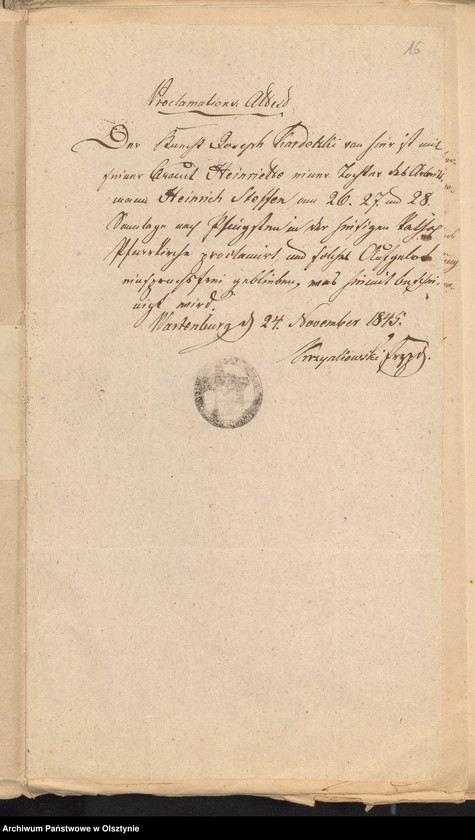 16
Proclamations Attest
Der Knecht Joseph Kardekki von hier ist mit
seiner Braut Heinriette einer Tochter des Arbeits
mann Heinrich Steffen am 26. 27. und 28.
Sonntage nach Pfingsten in der hiesigen kathol
Pfarrkirche proclamirt und solches Aufgebot
einspruchsfrei geblieben, was hiemit beschei-
nigt wird.
Wartenburg d 24. November 1845.
Archiwum Państwowe w Olsztynie